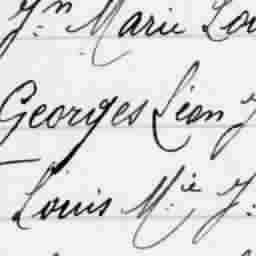 Jn Marie Lou
Georges Léon J
Louis M.ie J.